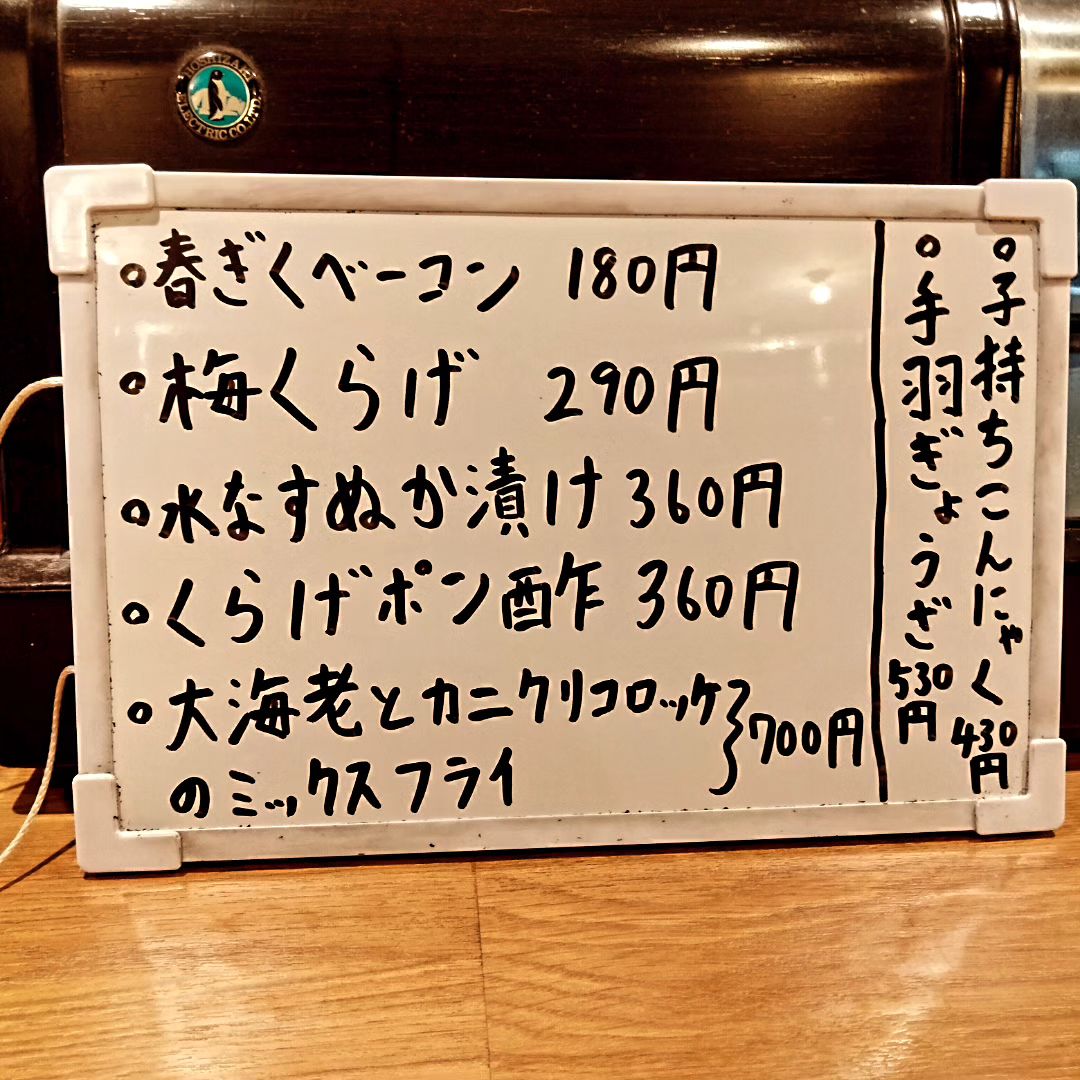 HOSHIZAKI
ELECTRIC CO.LTD
○春ぎくベーコン 180円
○梅くらげ 290円
○水なすぬか漬け 360円
○くらげポン酢 360円
○大海老とカニクリコロッケ
のミックスフライ } 700円
○子持ちこんにゃく 430円
○手羽ぎょうざ 530円